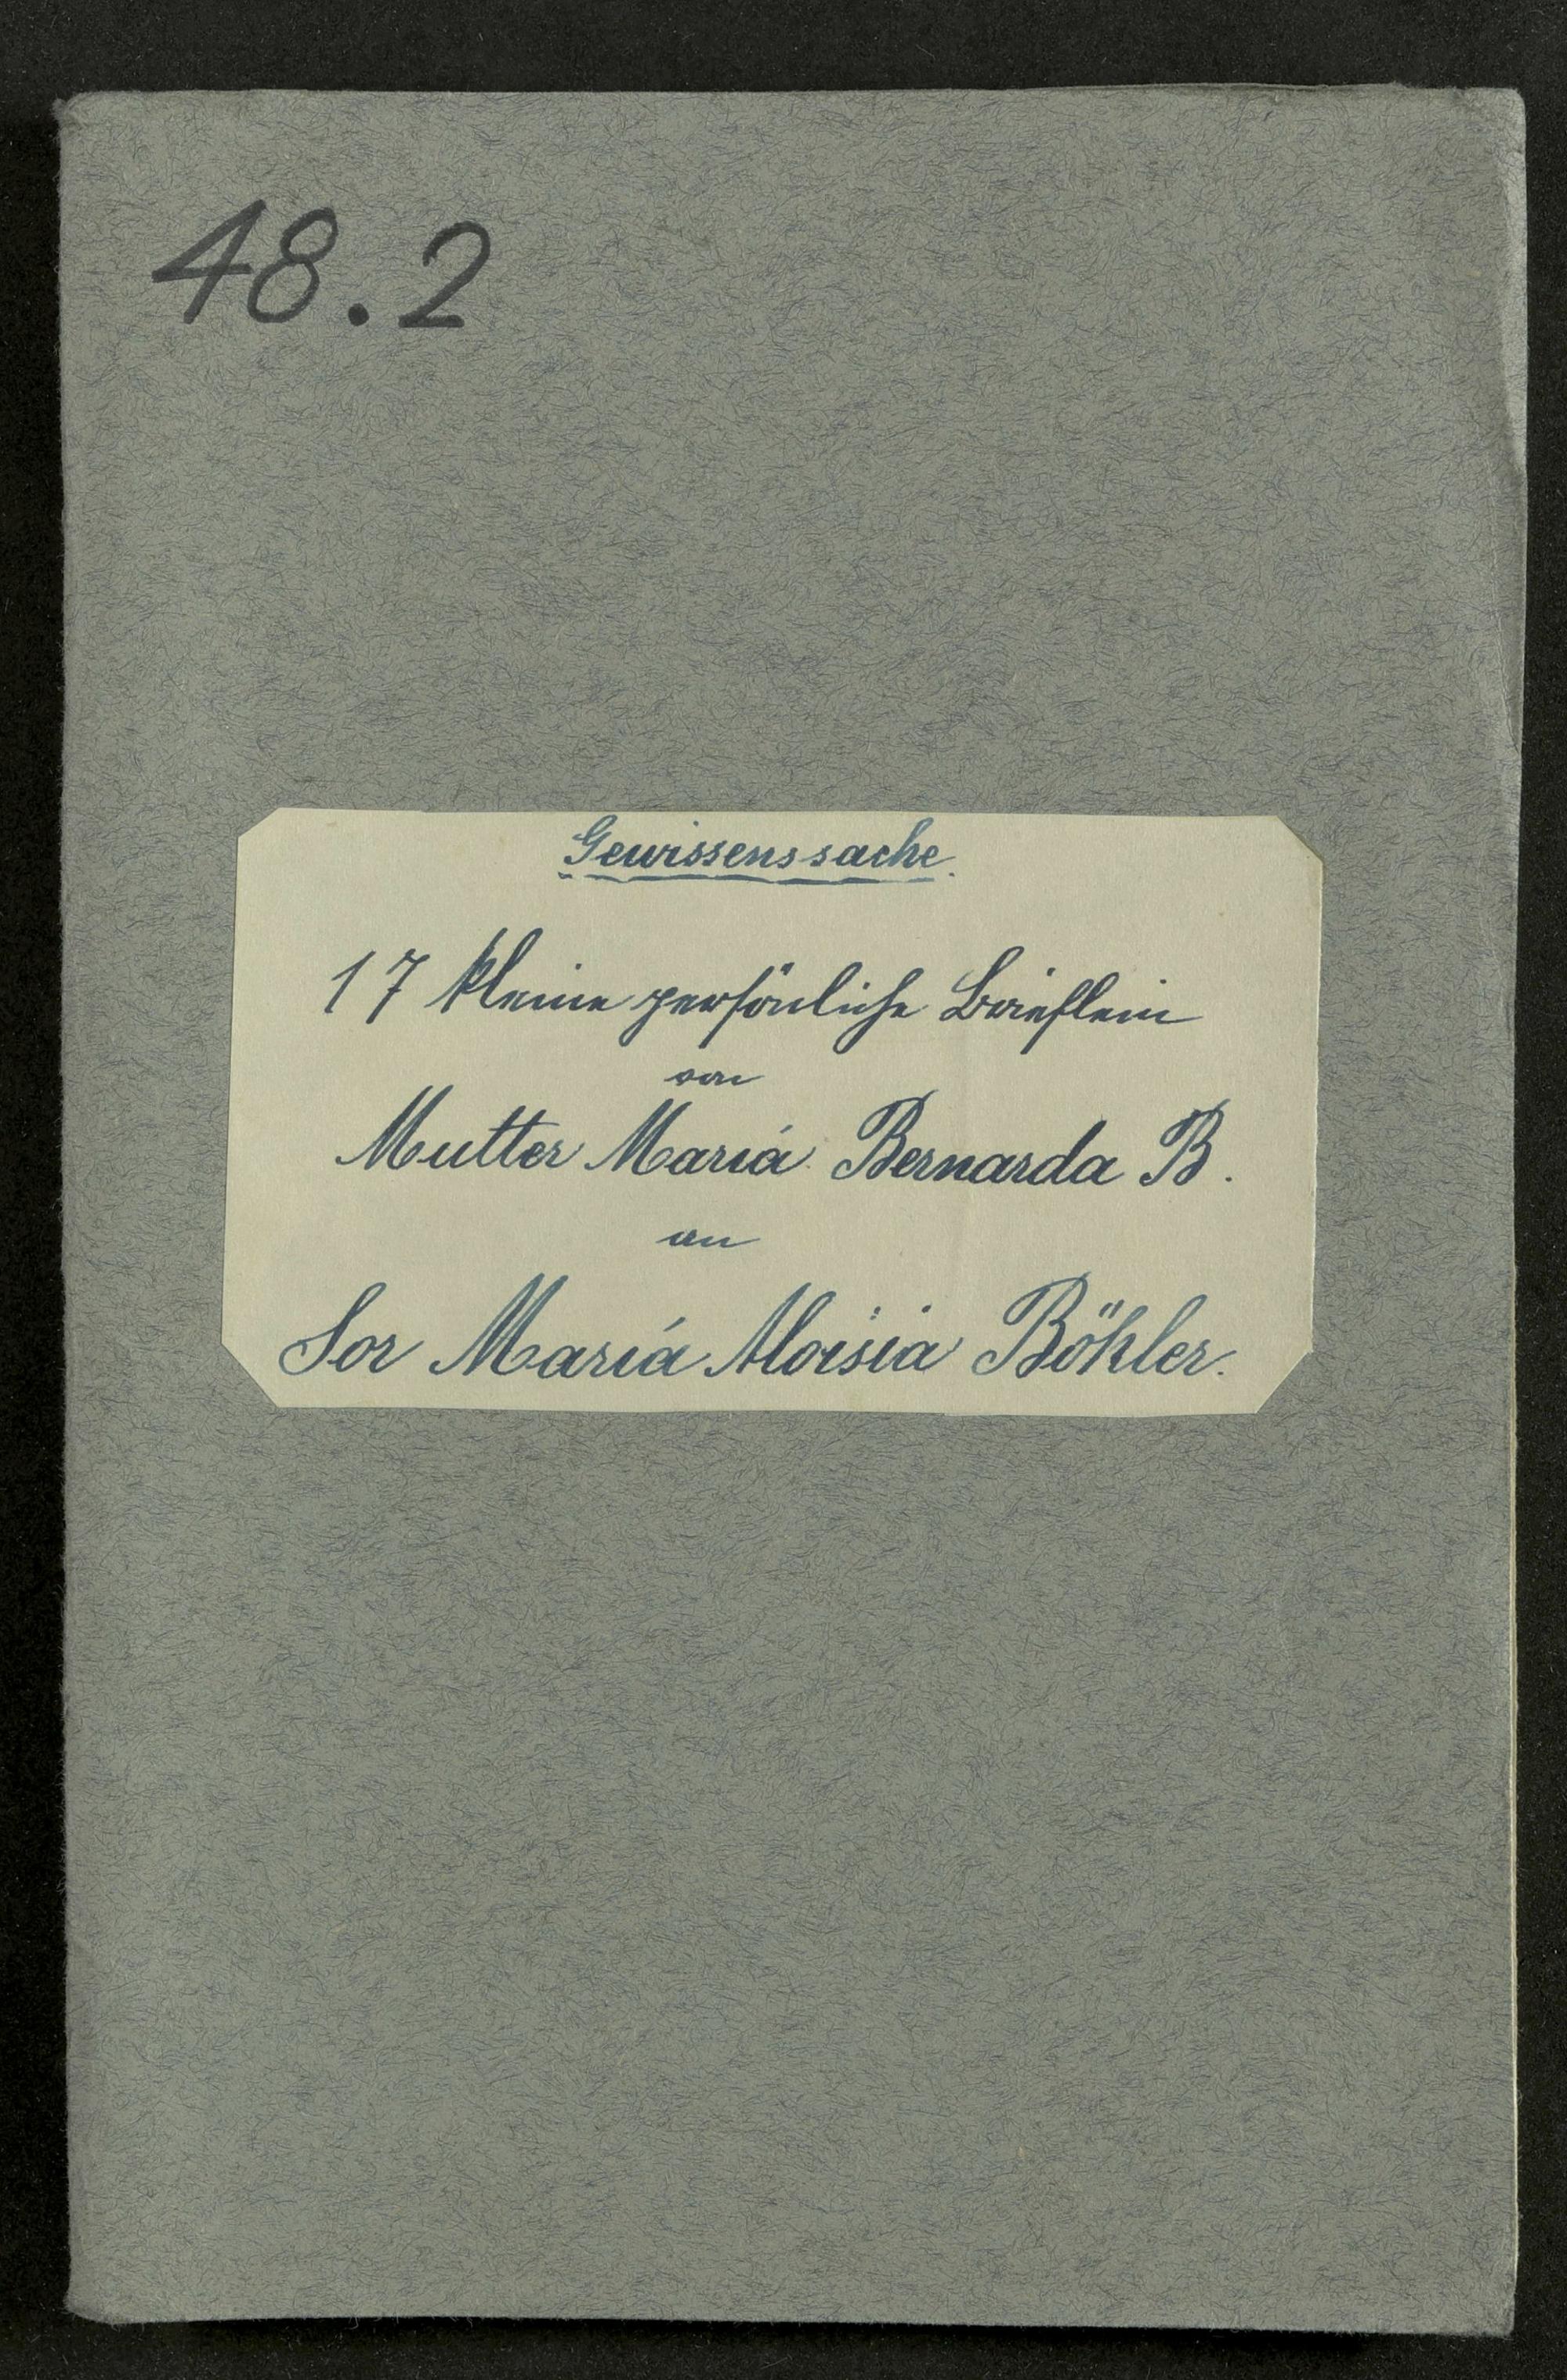 48.2
Gewissenssache.
17 kleine persönliche Brieflein
von
Mutter Mariá Bernarda B.
an
Sor Mariá Aloisia Böhler.